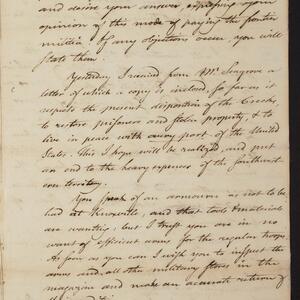 and desire your answer expressing your
opinion of this mode of paying the
militia If any objections occur you will
state them.
Yesterday I received from Mr. Seagrove a
letter of which a copy is inclosed, so far as it
regards the present disposition of the Creeks,
to restore prisoners and stolen property, & to
live in peace with every part of the United
States. This I hope will be realized, and put
an end to the heavy expenses of the Southwest-
ern territory.
You speak of an armourer as not to be
had at Knoxville, and that tools & materials
are wanting, but I trust you are in no
want of efficient arms for the regular troops.
As soon as you can I wish you to inspect the
arms and all other military stores in the
magazine and make an accurate return of